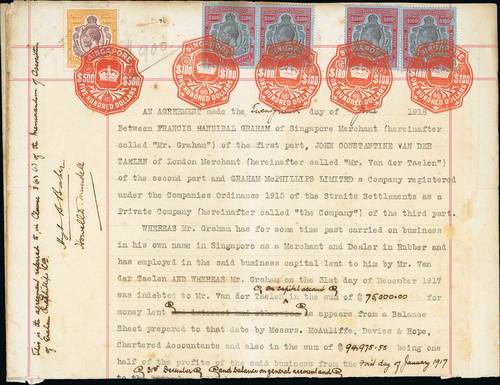 SINGAPORE
$500 $500
FIVE HUNDRED DOLLARS
SINGAPORE
$100 $100
SINGAPORE
$100 $100
SINGAPORE
$100 $100
SINGAPORE
$100 $100
AN AGREEMENT made the day of June 1918
Between FRANCIS HANNIBAL GRAHAM of Singapore Merchant (hereinafter
called "Mr. Graham") of the first part, JOHN CONSTANTINE VAN DER
TAELEN of London Merchant (hereinafter called "Mr. Van der Taelen")
of the second part and GRAHAM McPHILLIPS LIMITED a Company registered
under the Companies Ordinance 1915 of the Straits Settlements as a
Private Company (hereinafter called "the Company") of the third part.
WHEREAS Mr. Graham has for some time past carried on business
in his own name in Singapore as a Merchant and Dealer in Rubber and
has employed in the said business capital lent to him by Mr. Van
der Taelen AND WHEREAS Mr. Graham on the 31st day of December 1917
on capital account
was indebted to Mr. Van der Taelen in the sum of $ 75,000.00 for
money lent as appears from a Balance
Sheet prepared to that date by Messrs. McAuliffe, Davies & Hope,
Chartered Accountants and also in the sum of $ 94,975.58 being one
half of the profits of the said business from the First day of January 1917
31st December and balance on general account
This is the agreement referred to in Clause 3 of the Memorandum of Association
of Graham McPhillips Ltd